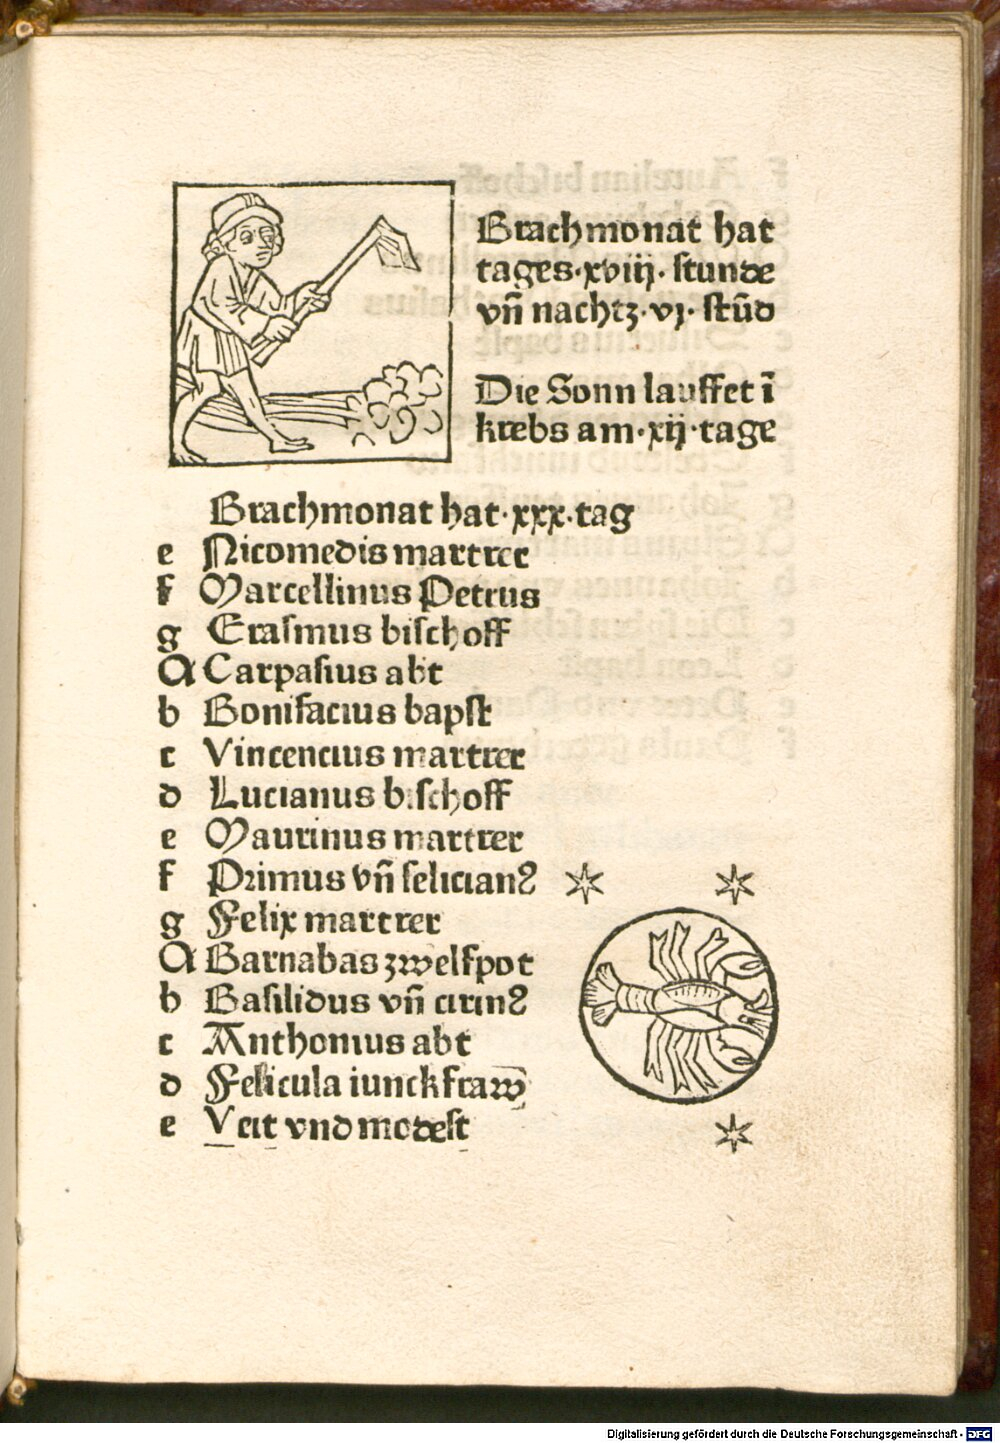 Brachmonat hat
tages·xviij·stunde
vñ nachtz·vj·stūd
Die Sonn lauffet ī
krebs am·xij·tage
Brachmonat hat·xxx·tag
e Nicomedis martrer
f Marcellinus Petrus
g Erasmus bischoff
A Carpasius abt
b Bonifacius bapst
c Vincencius martrer
d Lucianus bischoff
e Maurinus martrer
f Primus vñ felicianꝰ
g Felix martrer
A Barnabas zwelfpot
b Basilidus vñ cirinꝰ
c Anthonius abt
d Felicula iunckfraw
e Veit vnd modest
Digitalisierung gefördert durch die Deutsche Forschungsgemeinschaft - DFG